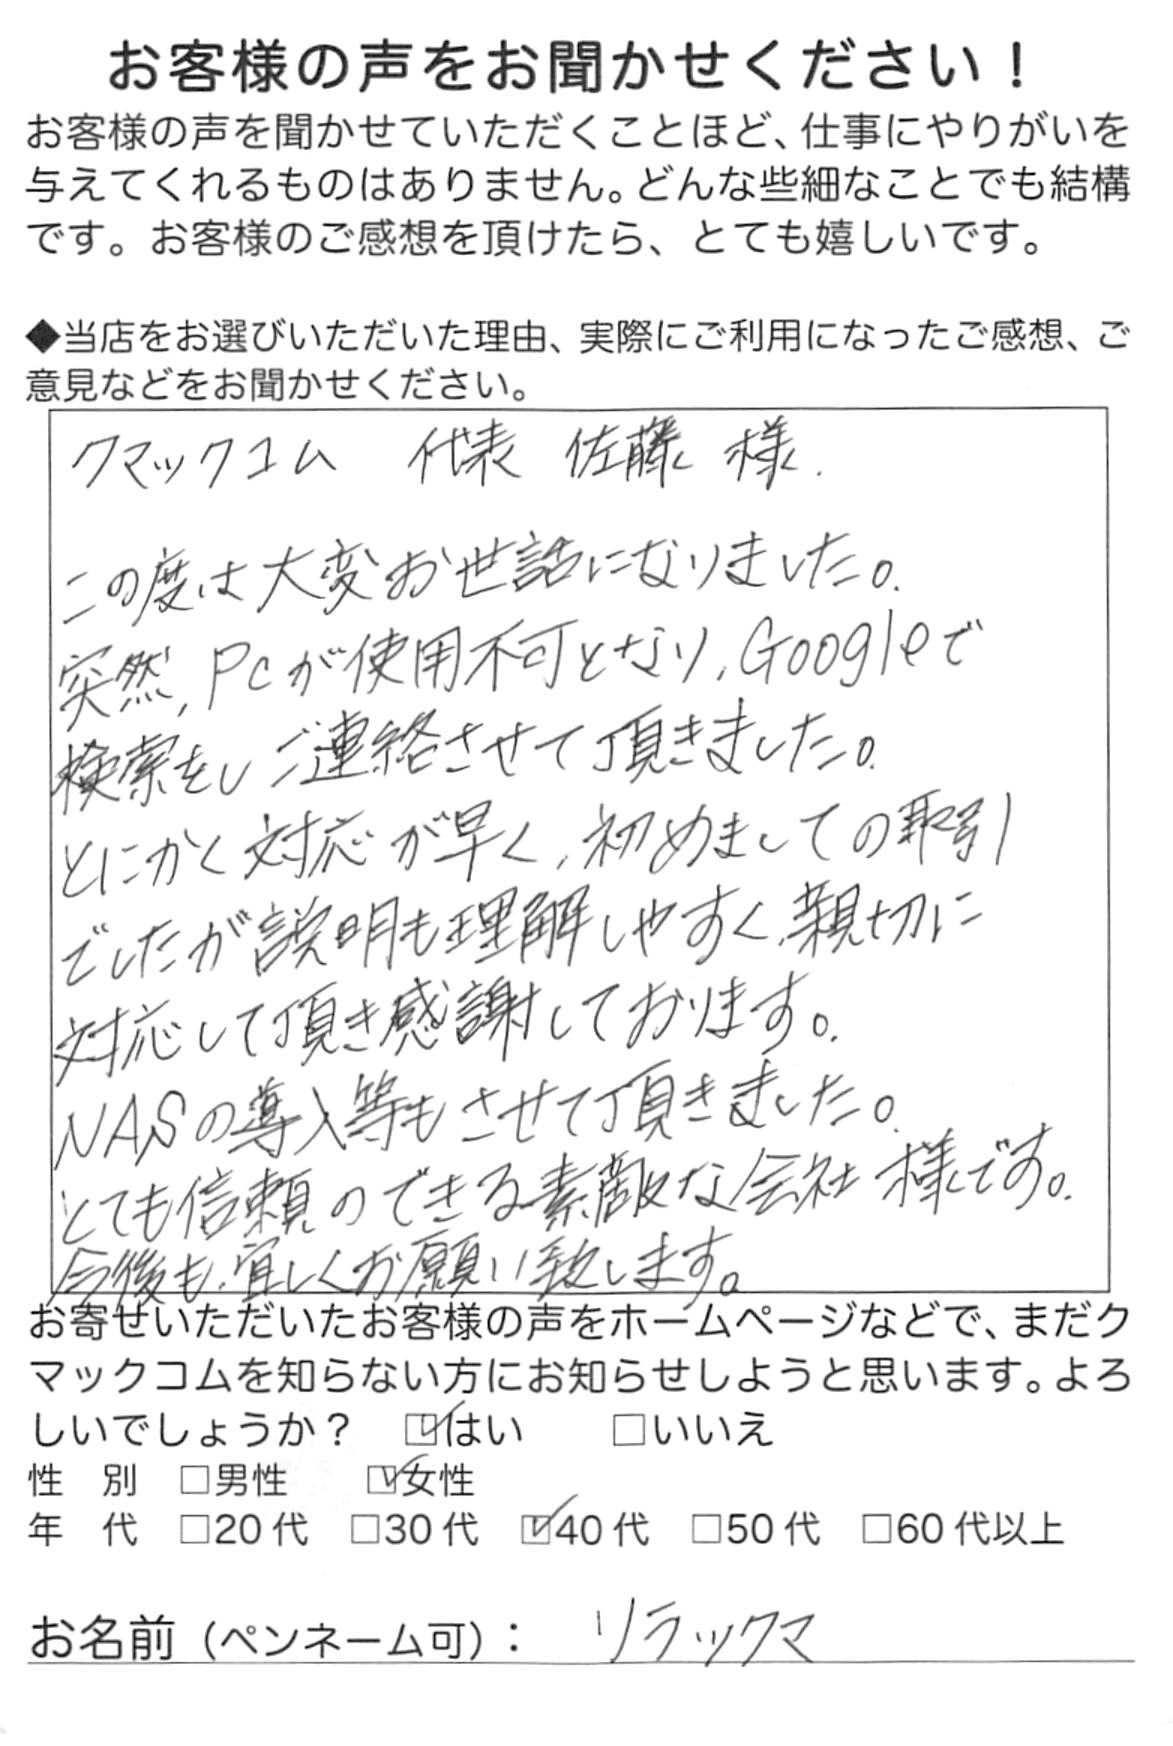 お客様の声をお聞かせください！
お客様の声を聞かせていただくことほど、仕事にやりがいを
与えてくれるものはありません。どんな些細なことでも結構
です。お客様のご感想を頂けたら、とても嬉しいです。
◆当店をお選びいただいた理由、実際にご利用になったご感想、ご
意見などをお聞かせください。
クマックコム 代表 佐藤 様.
この度は大変お世話になりました。
突然, PCが使用不可となり, Googleで
検索をしご連絡させて頂きました。
とにかく対応が早く, 初めましての取引
でしたが説明も理解しやすく, 親切に
対応して頂き感謝しております。
NASの導入等もさせて頂きました。
とても信頼のできる素敵な会社 様です。
今後も, 宜しくお願い致します。
お寄せいただいたお客様の声をホームページなどで、まだク
マックコムを知らない方にお知らせしようと思います。よろ
しいでしょうか？ ☑はい □いいえ
性 別 □男性 ☑女性
年 代 □20代 □30代 ☑40代 □50代 □60代以上
お名前（ペンネーム可）： リラックマ